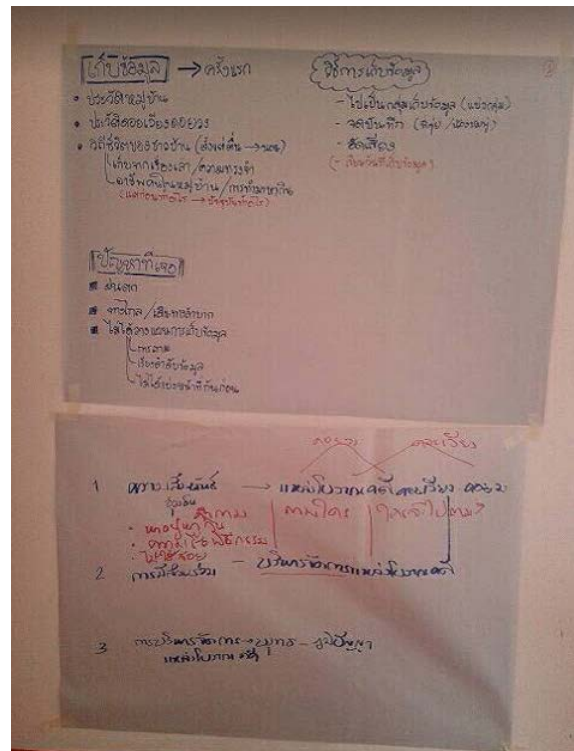 เก็บข้อมูล → ครั้งแรก
• ประวัติหมู่บ้าน
• ประวัติดอยเวียงดอยวง
• วิถีชีวิตของชาวบ้าน (ตั้งแต่ตื่น → นอน)
เก็บจากเรื่องเล่า/ความทรงจำ
อาชีพคนในหมู่บ้าน/การทำมาหากิน
(แต่ก่อนทำอะไร → ปัจจุบันทำอะไร)
วิธีการเก็บข้อมูล
- ไปเป็นกลุ่มเก็บข้อมูล (แบ่งกลุ่ม)
- จดบันทึก
- อัดเสียง
ปัญหาที่เจอ
ฝนตก
ทางไกล/เส้นทางลำบาก
ไม่ได้วางแผนการเก็บข้อมูล
การถาม
เรียงลำดับข้อมูล
ไม่ได้แบ่งหน้าที่กันก่อน
ดอยวง
ดอยเวียง
1 ความสัมพันธ์ → แหล่งโบราณคดีดอยเวียง ดอยวง
ชุมชน
คำถาม ถามใคร ใครจะไปถาม?
2 การมีส่วนร่วม - บริหารจัดการแหล่งโบราณคดี
3 การบริหารจัดการ - ภูมิปัญญา
แหล่งโบราณคดี